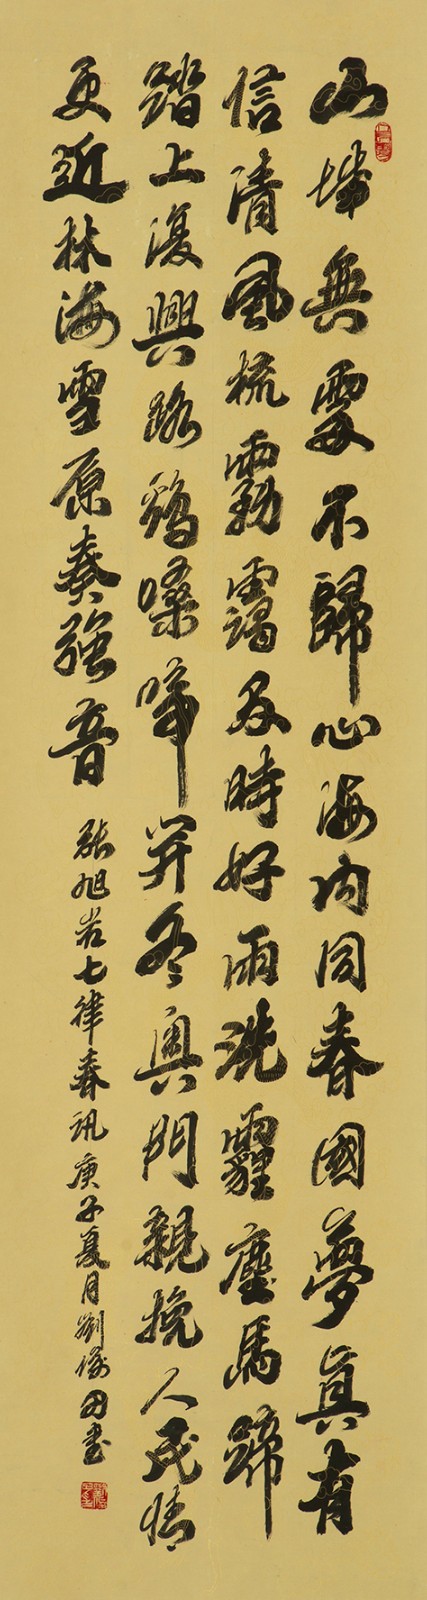 山城無處不歸心海内同春國夢真有
信清風梳霧靄及時好雨洗霾塵馬蹄
踏上復興路鷄嗓啼开冬奥門親挽人民情
更近林海雪原奏強音
張旭岩七律春訊庚子夏月劉俊田書